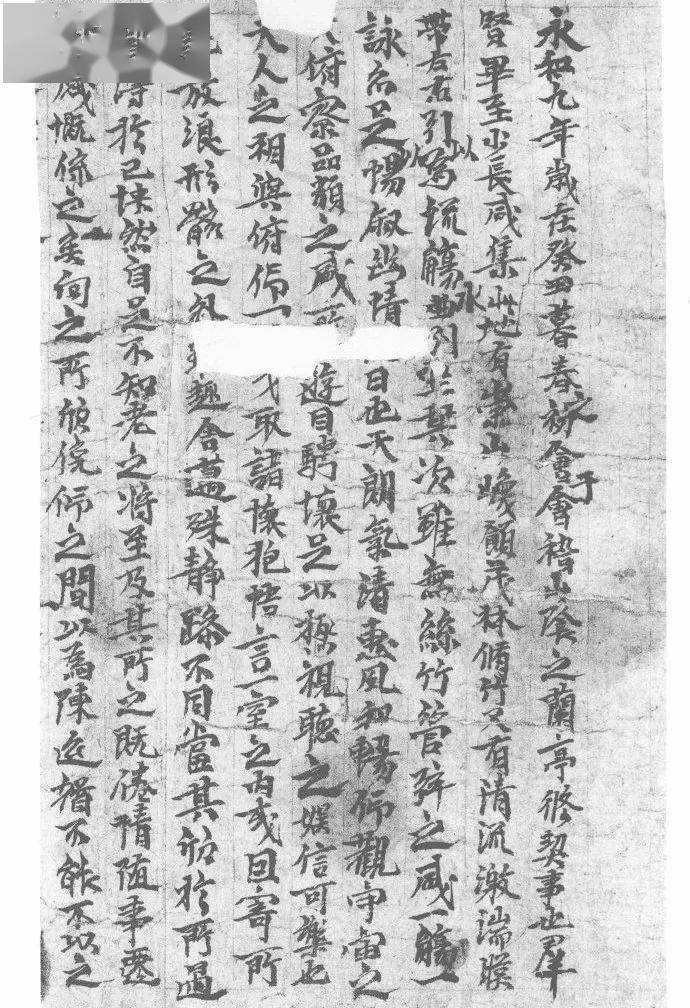 永和九年歲在癸丑暮春之初會于會稽山陰之蘭亭修禊事也群
賢畢至少長咸集此地有崇山峻領茂林脩竹又有清流激湍暎
帶左右引以為流觴曲水列坐其次雖無絲竹管弦之盛一觴一
詠亦足暢敘幽情日也天朗氣清惠風和暢仰觀宇宙之
俯察品類之盛所遊目騁懷足以極視聽之娛信可樂也
夫人之相與俯仰一或取諸懷抱悟言一室之內或因寄所
放浪形骸之外趣舍萬殊靜躁不同當其欣於所遇
得於己怏然自足不知老之將至及其所之既倦情隨事遷
感慨係之矣向之所欣俛仰之間以為陳迹猶不能不以之